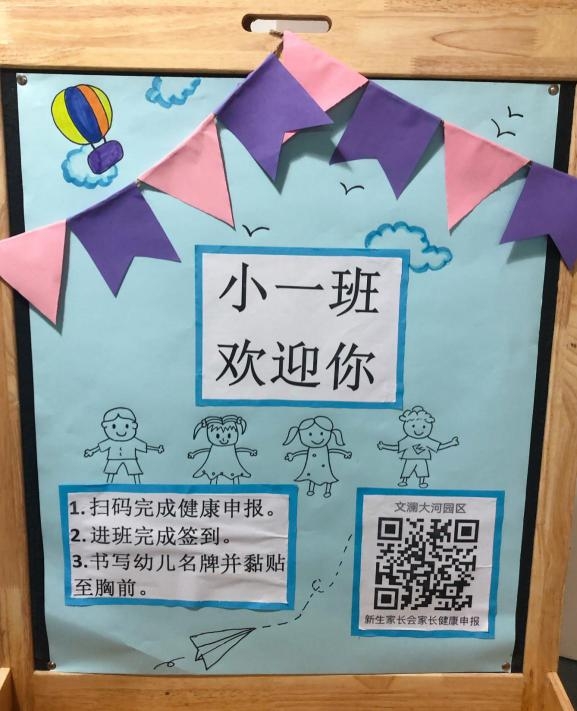 小一班
欢迎你
1.扫码完成健康申报。
2.进班完成签到。
3.书写幼儿名牌并黏贴
至胸前。
文澜大河园区
新生家长会家长健康申报